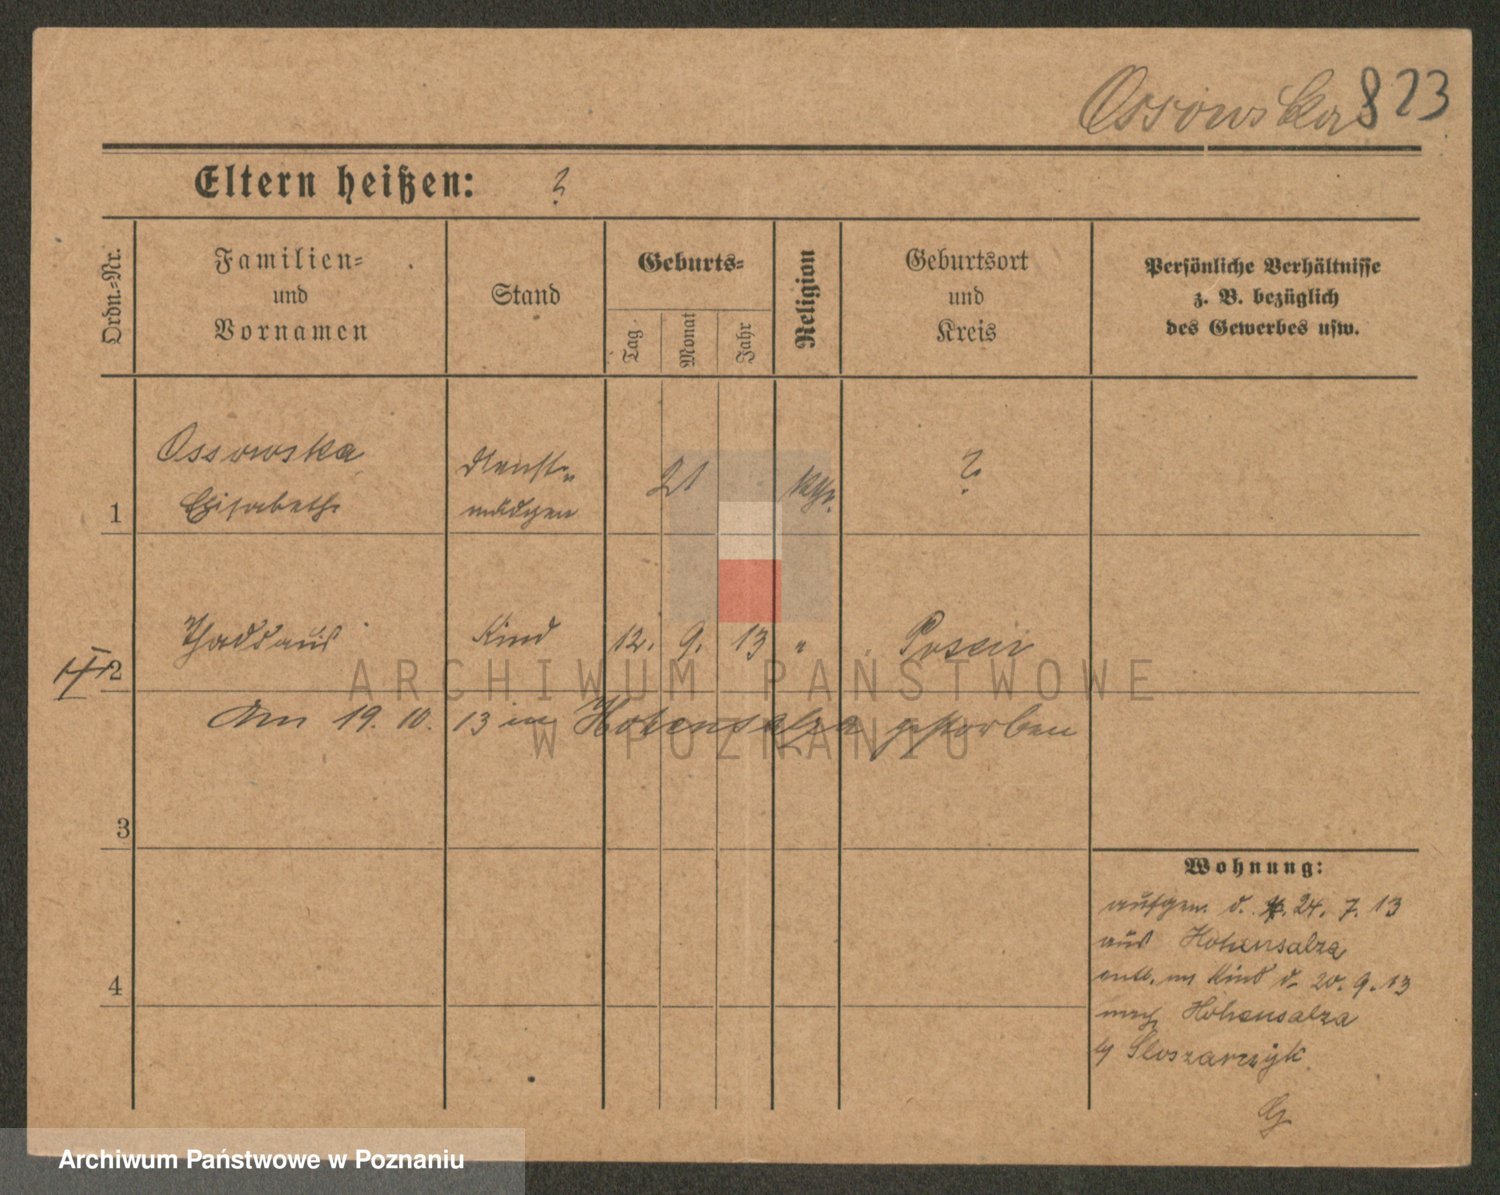 Ossowska 823
Eltern heißen: ?
Ordn.-Nr.
Familien-
und
Vornamen
Stand
Geburts-
Tag
Monat
Jahr
Religion
Geburtsort
und
Kreis
Persönliche Verhältnisse
z. B. bezüglich
des Gewerbes usw.
1
Ossowska
Elisabeth
Dienst-
mädchen
21
kath.
?
2
Thaddäus
Kind
12. 9. 13
"
Posen
Am 19. 10. 13 in Hohensalza gestorben
3
4
Wohnung:
aufgen. d. 24. 7. 13
aus Hohensalza
entl. m Kind d. 20. 9. 13
nach Hohensalza
b/ Sloszarczyk
ARCHIWUM PAŃSTWOWE
W POZNANIU
Archiwum Państwowe w Poznaniu